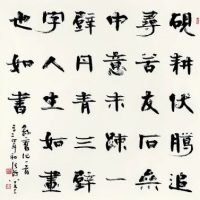 硯耕伏騰追
尋苦友石無
中意未疎一
壁丹青三壁
字人生如畫
也如書